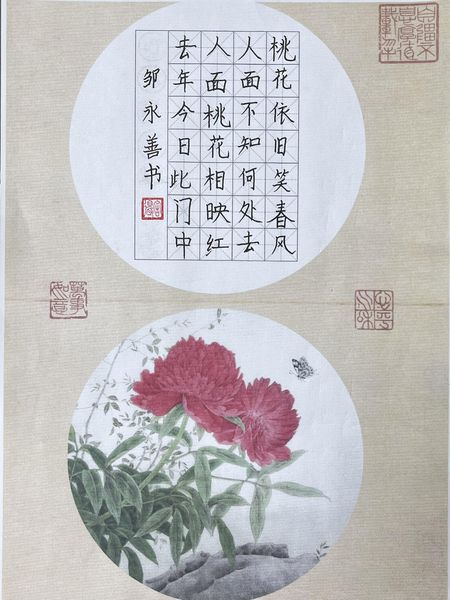 去年今日此门中
人面桃花相映红
人面不知何处去
桃花依旧笑春风
邹永善书
萬事如意